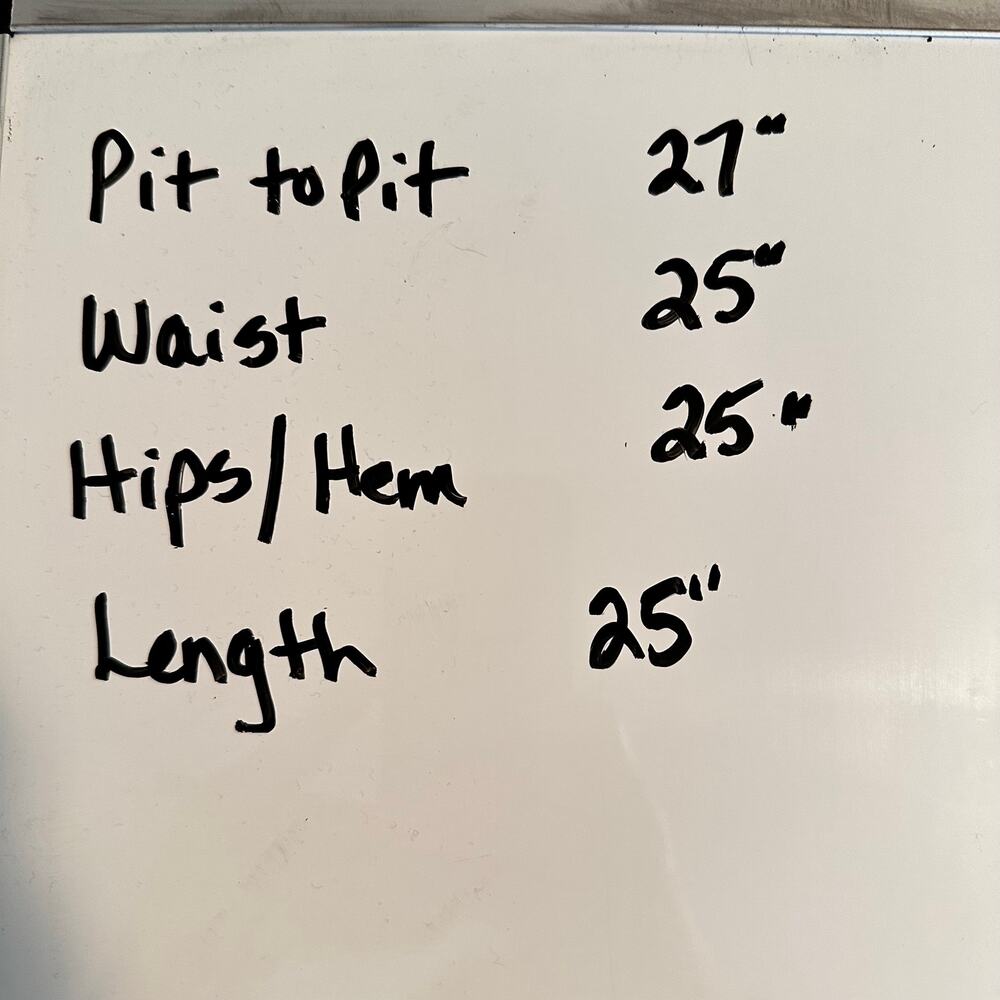 Pit to Pit 27"
Waist 25"
Hips/Hem 25"
Length 25"